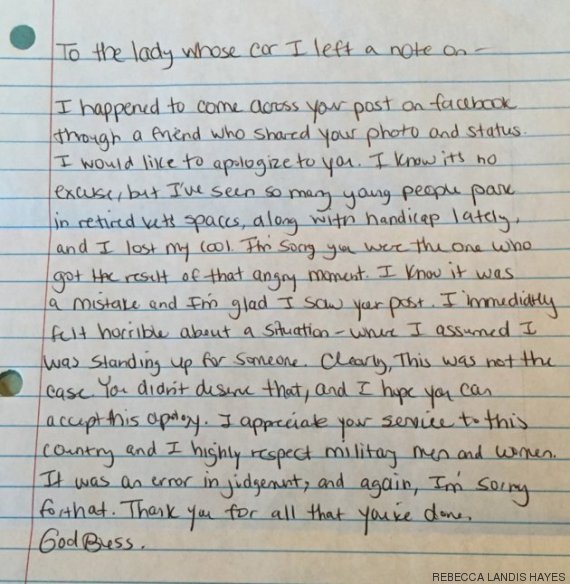 To the lady whose car I left a note on –
I happened to come across your post on facebook
through a friend who shared your photo and status.
I would like to apologize to you. I know its no
excuse, but I've seen so many young people park
in retired vets spaces, along with handicap lately,
and I lost my cool. I'm sorry you were the one who
got the result of that angry moment. I know it was
a mistake and I'm glad I saw your post. I immediatly
felt horrible about a situation – where I assumed I
was standing up for someone. Clearly, This was not the
case. You didn't deserve that, and I hope you can
accept this apology. I appreciate your service to this
country and I highly respect military men and women.
It was an error in judgement, and again, I'm sorry
for that. Thank you for all that you've done.
God Bless.
REBECCA LANDIS HAYES